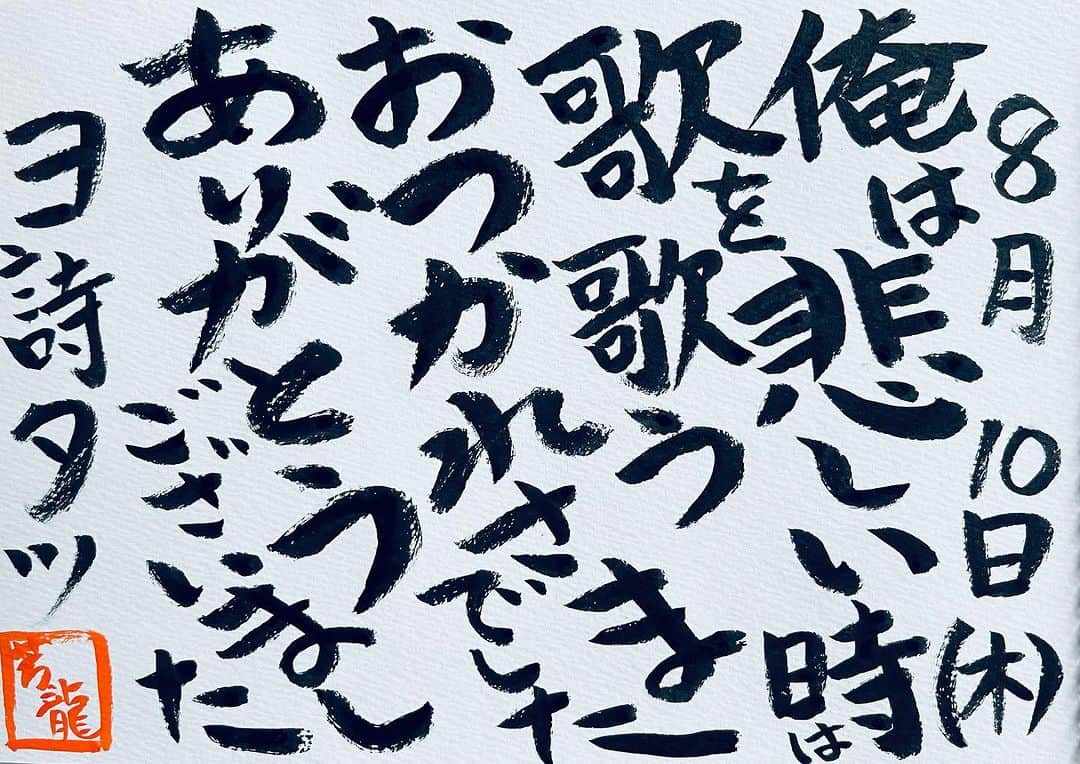 8月10日(木)
俺は悲しい時は
歌を歌う
おつかれさまでした
ありがとうございました
ヨ詩タツ